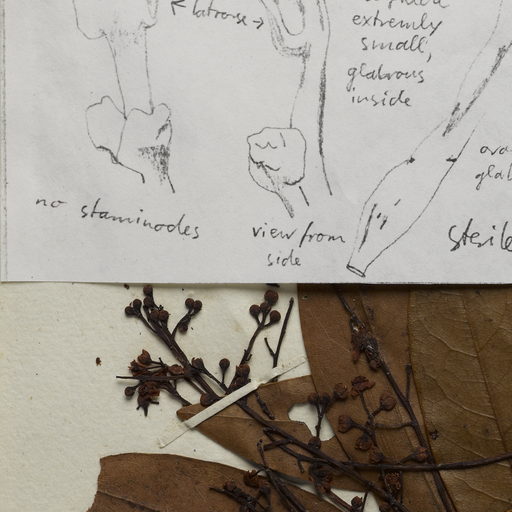 latrorse
extremly
small,
glabrous
inside
no staminodes
view from
side